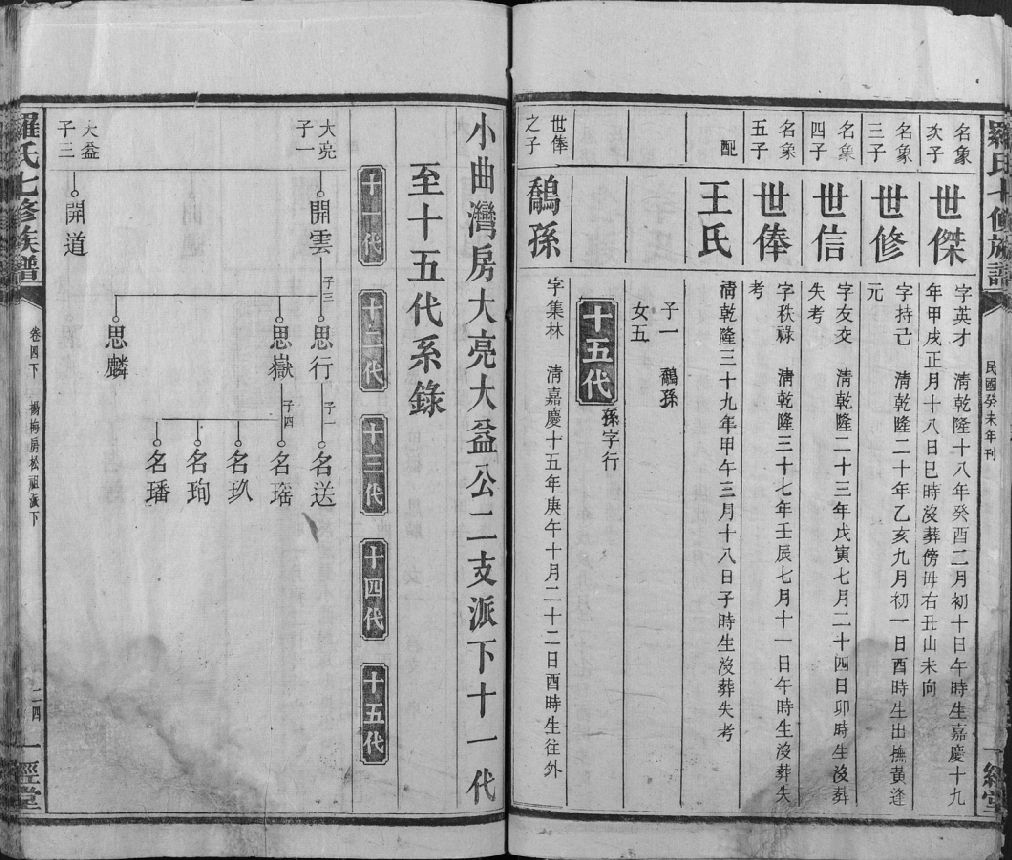 羅氏七修族譜
民國癸未年刊
一經堂
名象次子
世傑
字英才 清乾隆十八年癸酉二月初十日午時生嘉慶十九
年甲戌正月十八日巳時沒葬傍毋右丑山未向
名象三子
世修
字持己 清乾隆二十年乙亥九月初一日酉時生出撫黃逢
元
名象四子
世信
字友交 清乾隆二十三年戊寅七月二十四日卯時生沒葬
失考
名象五子
世俸
字秩祿 清乾隆三十七年壬辰七月十一日午時生沒葬失
考
配
王氏
清乾隆三十九年甲午三月十八日子時生沒葬失考
子一 鷸孫
女五
十五代 孫字行
世俸之子
鷸孫
字集林 清嘉慶十五年庚午十月二十二日酉時生往外
小曲灣房大亮大益公二支派下十一代
至十五代系錄
十一代 十二代 十三代 十四代 十五代
大亮子一
開雲
子三
思行
子一
名送
思嶽
子四
名瑤
名玖
名珣
名璠
思麟
大益子三
開道
羅氏七修族譜
卷四下
楊梅房松祖派下
二四
一經堂